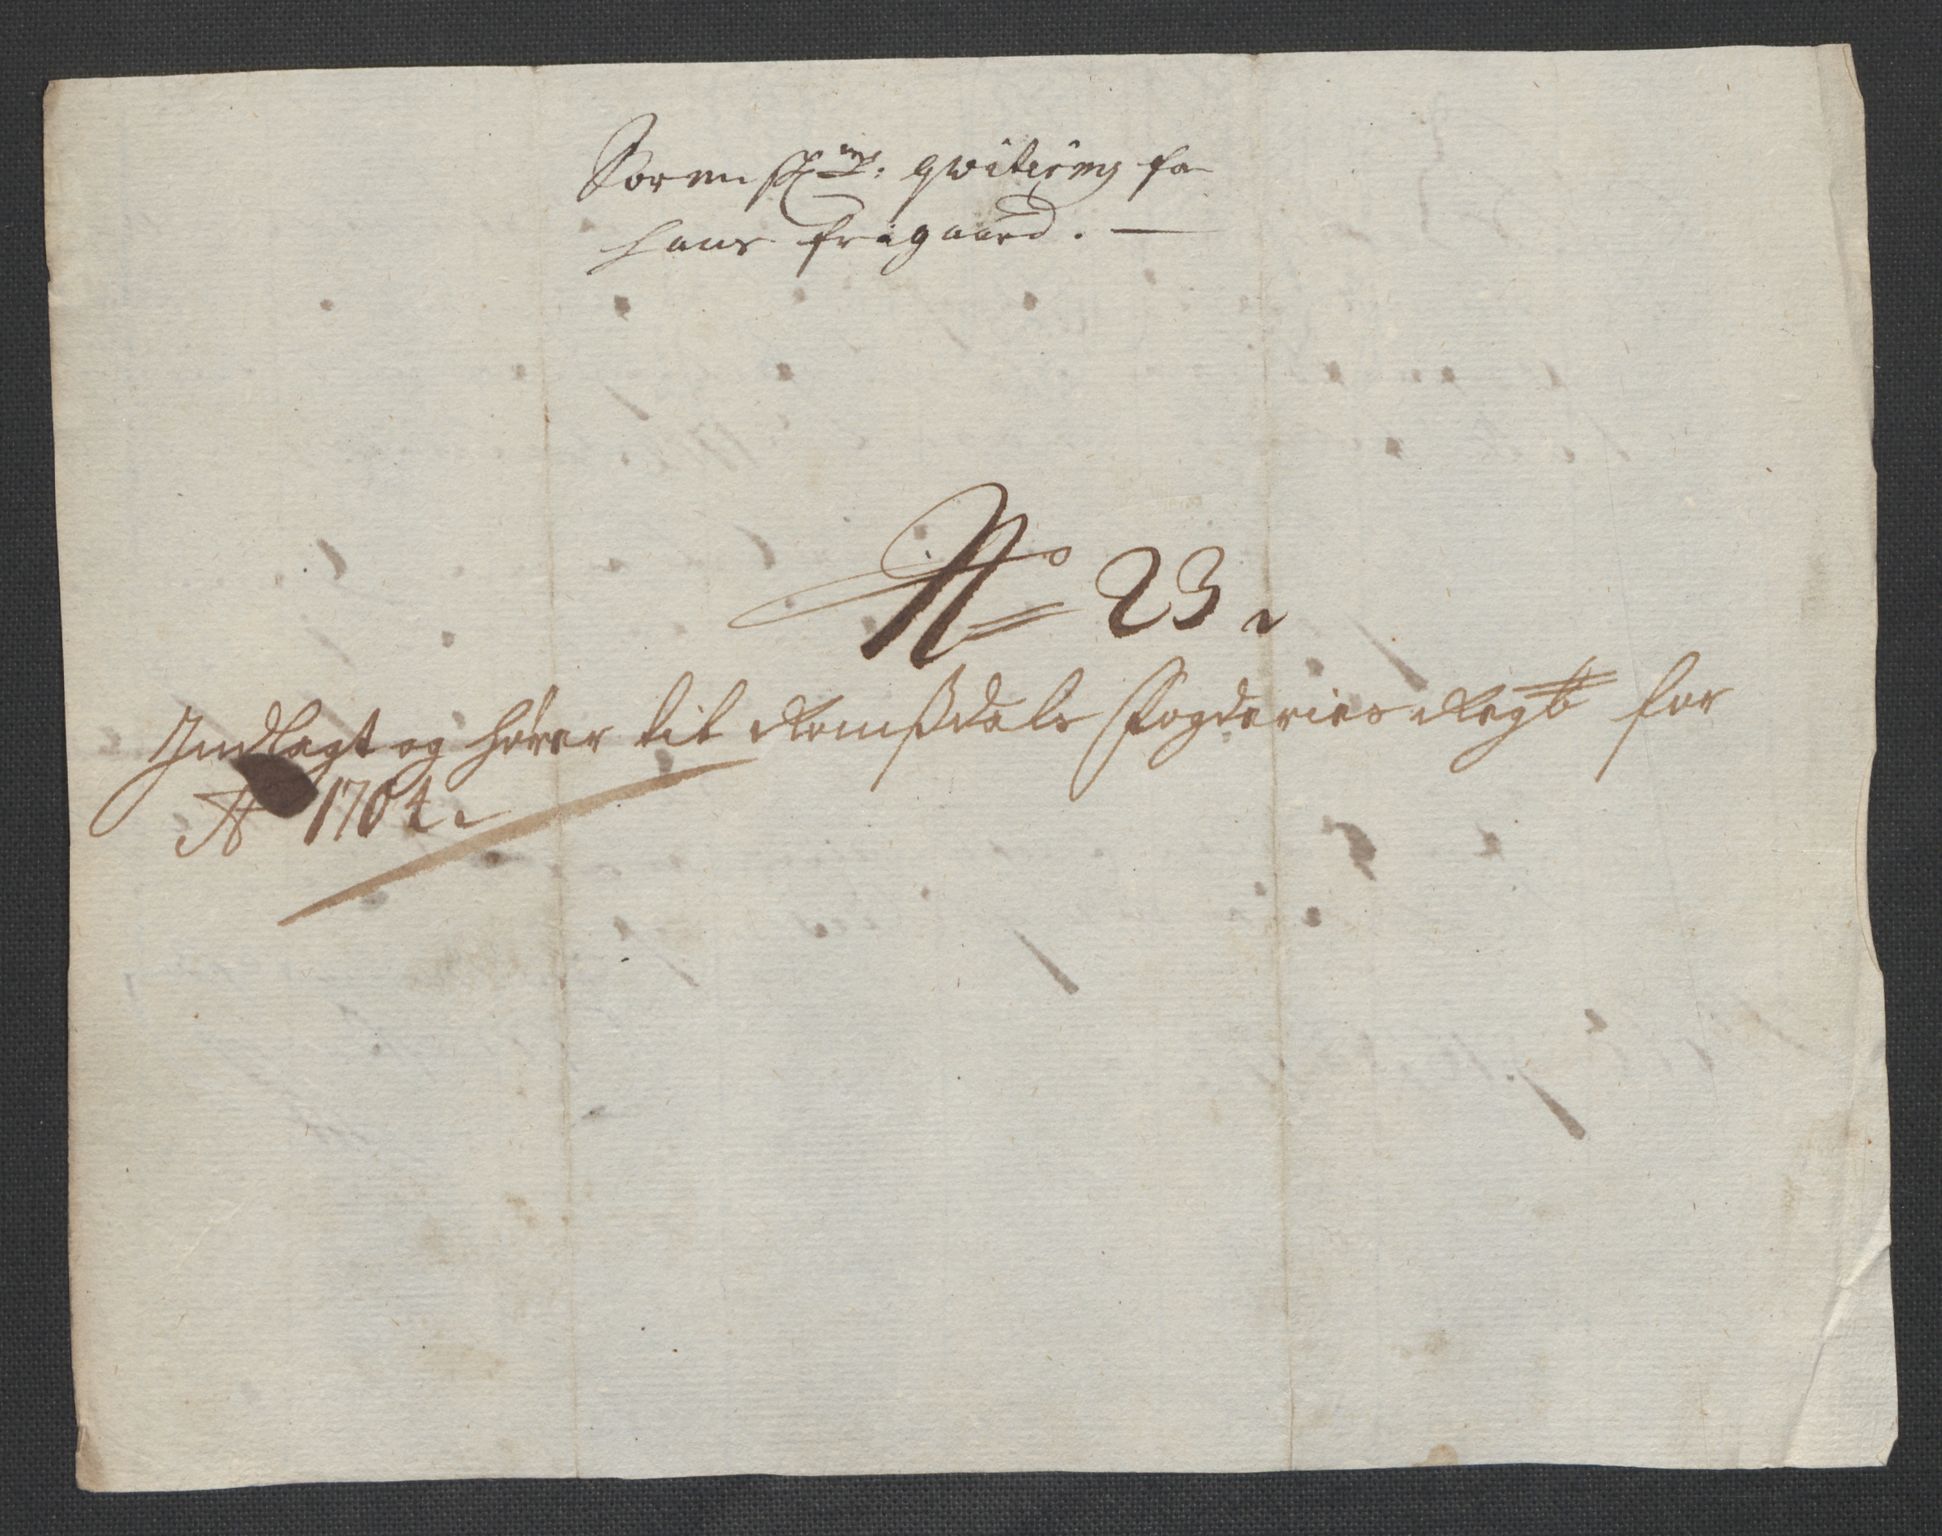 Soren qvitering for
hans frigaard. —
No 23
Indlagt og hører til Romßdals Fogderies Regb for
Ao 1704.